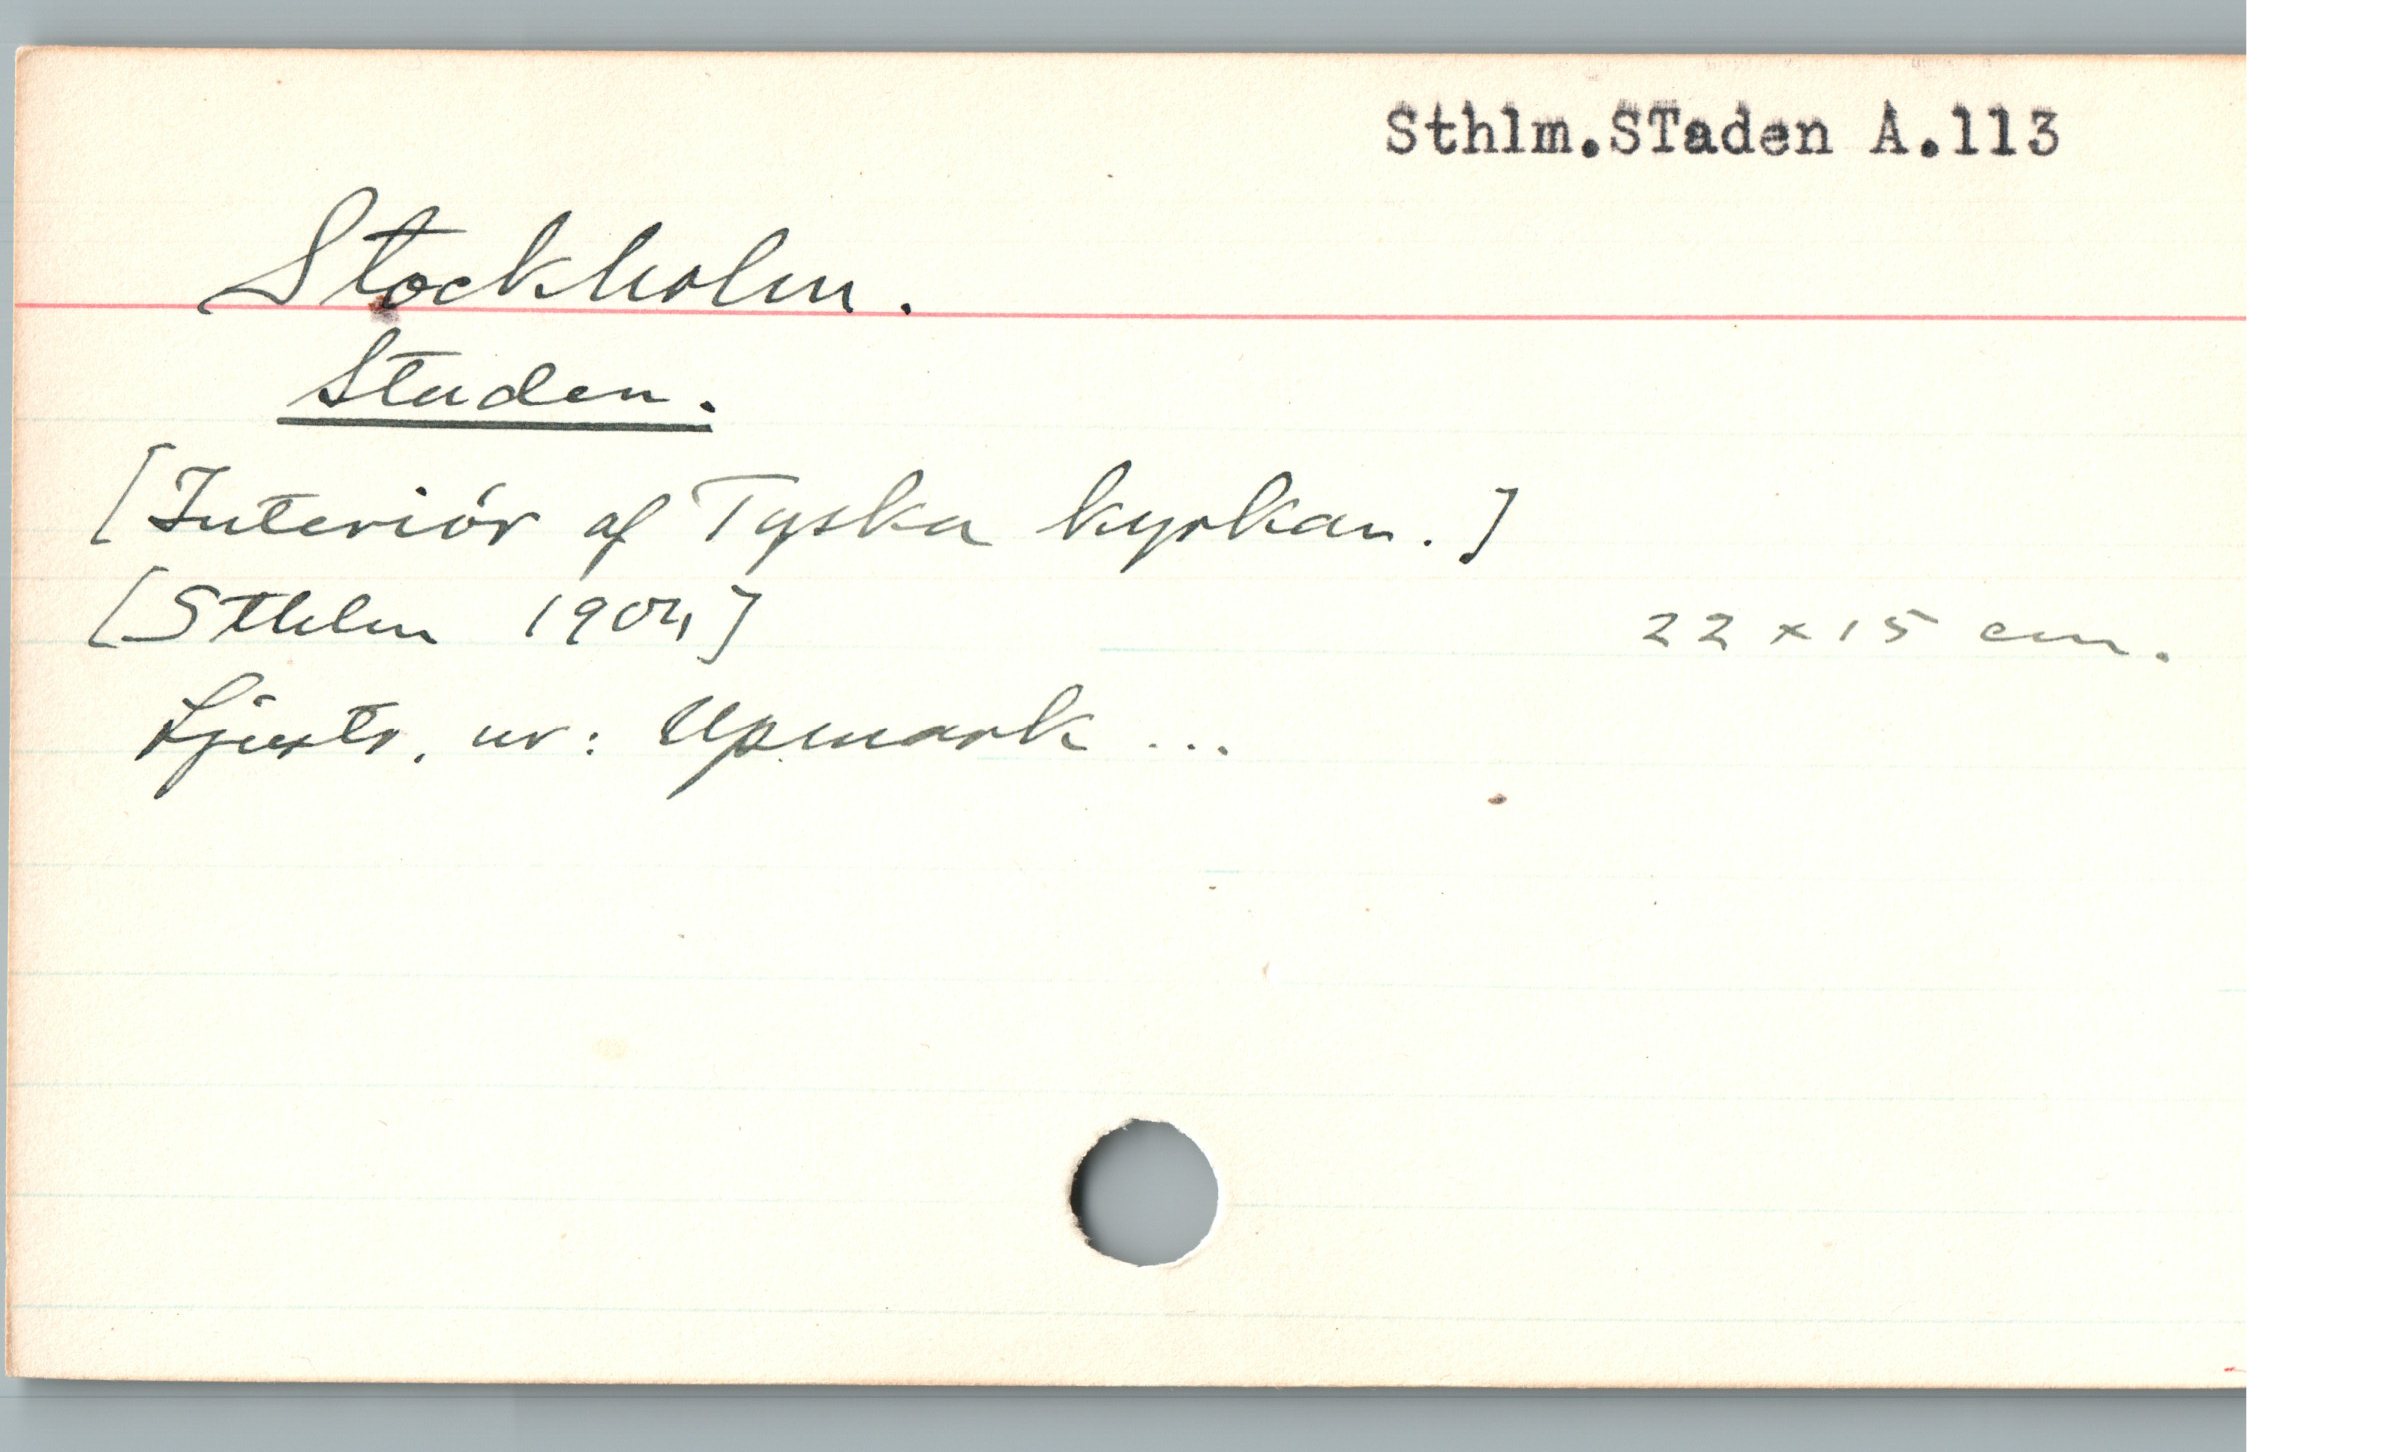 Sthlm.STaden A.113
Stockholm.
Staden.
[Interiör af Tyska kyrkan.]
[Sthlm 1904]
22 x 15 cm.
Ljustr. ur: Upmark ...